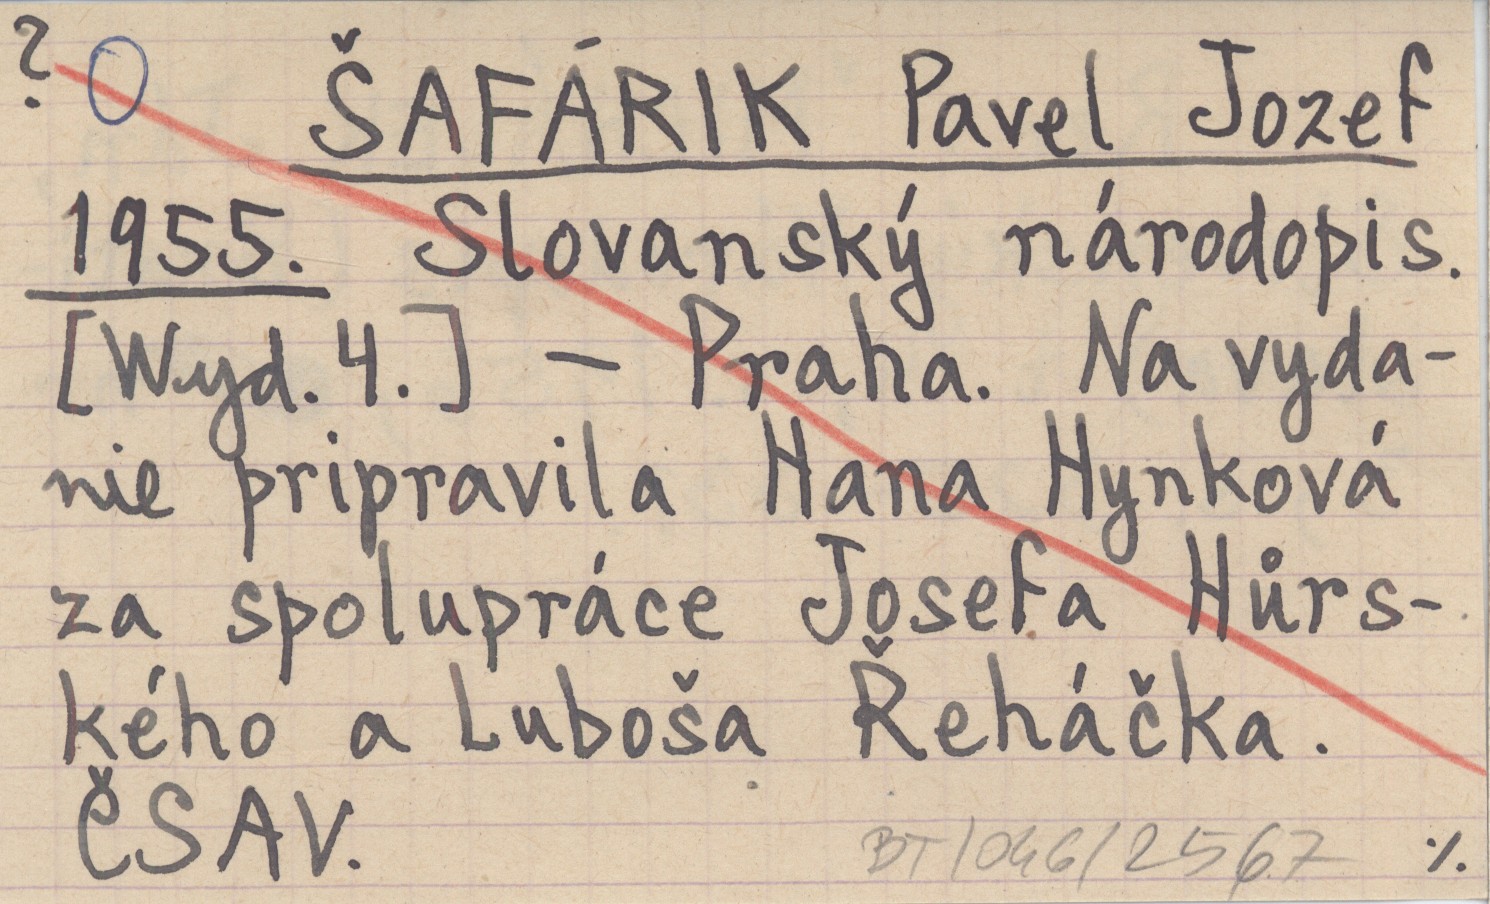 ? O ŠAFÁRIK Pavel Jozef
1955. Slovanský národopis.
[Wyd. 4.] – Praha. Na vyda-
nie pripravila Hana Hynková
za spolupráce Josefa Hůrs-
kého a Luboša Řeháčka.
ČSAV.
BT/046/2567 ٪.